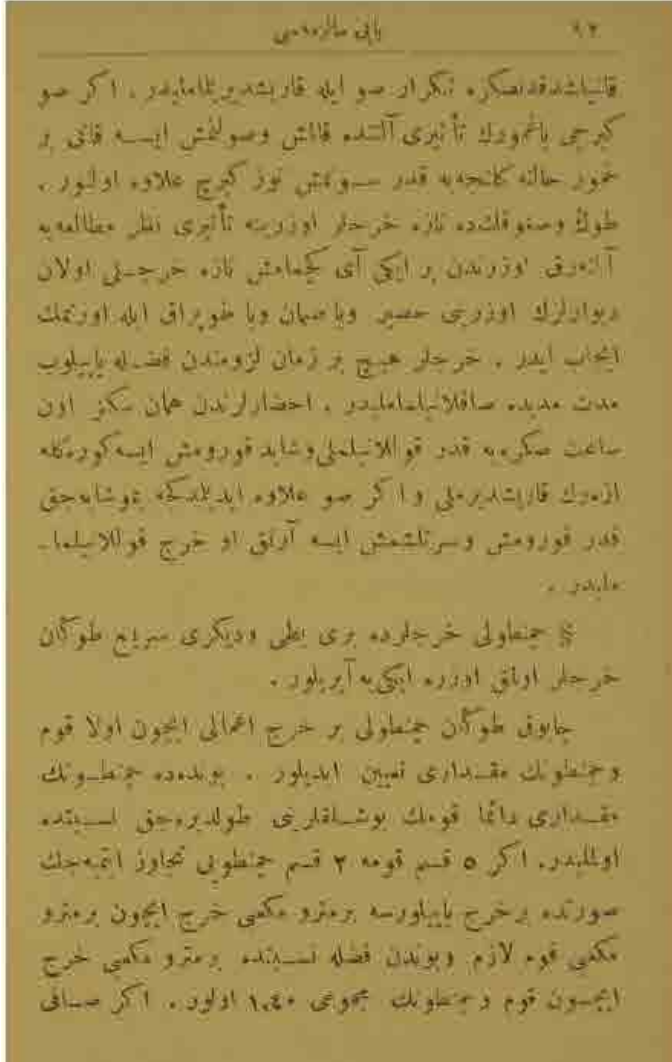 ٩٢ یاپی مالزمه‌سی
قاتیلشدقدنصکره تکرار صو ایله قاریشدیریلمامليدر . اکر صو
کیرجی یاغمورك تأثیری آلتنده قالمش وصولنمش ایسه قاتی بر
خمور حالنه کلنجه‌یه قدر سونمش توز کیرج علاوه اولنور .
طوك وصغوقلقده تازه خرجلر اوزرینه تأثیری نظر مطالعه‌یه
آلنه‌رق اوزرندن بر ایکی آی کچمامش تازه خرجلی اولان
دیوارلرك اوزرینی حصیر ویا صمان ویا طوپراق ایله اورتمك
ایجاب ایدر . خرجلر هیچ بر زمان لزومندن فضله یاپیلوب
مدت مدیده صاقلانیلمامليدر . احضارلرندن همان سکز اون
ساعت صکره‌یه قدر قوللانیلملی وشاید قورومش ایسه کوره‌کله
ازه‌رك قاریشدیرملی واکر صو علاوه ایدیلدکجه یوشایه‌جق
قدر قورومش وسرتلشمش ایسه آرتق او خرج قوللانیلما-
ملیدر .
§ چمنطولی خرجلرده بری بطی ودیکری سریع طوکان
خرجلر اولمق اوزره ایکی‌یه آیریلور .
چابوق طوکان چمنطولی بر خرج اعمالی ایچون اولا قوم
وچمنطونك مقداری تعیین ایدیلور . بونده‌ده چمنطونك
مقداری دائما قومك بوشلقلرینی طولدیره‌جق نسبتده
اولملیدر. اکر ٥ قسم قومه ٢ قسم چمنطویی تجاوز ایتمه‌جك
صورتده بر خرج یاپیلورسه برمترو مکعبی خرج ایچون برمترو
مکعبی قوم لازم وبوندن فضله نسبتده برمترو مکعبی خرج
ایچون قوم وچمنطونك مجموعی ١،٤٠ اولور . اکر صافی